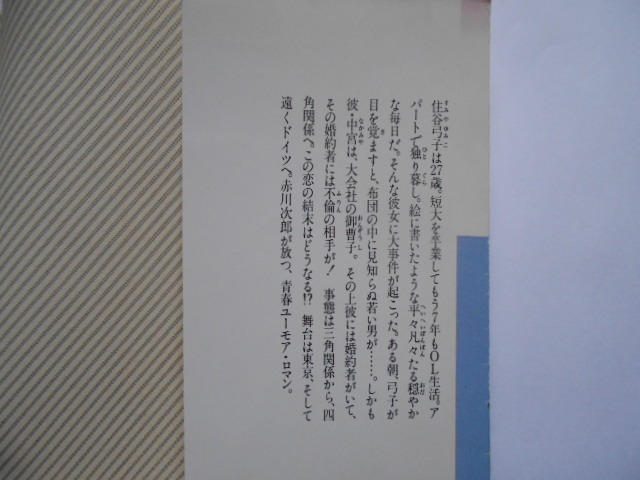 住谷弓子は27歳。短大を卒業してもう7年もOL生活。ア
パートで独り暮し。絵に書いたような平々凡々たる穏やか
な毎日だ。そんな彼女に大事件が起こった。ある朝、弓子が
目を覚ますと、布団の中に見知らぬ若い男が……。しかも
彼・中宮は、大会社の御曹子。その上彼には婚約者がいて、
その婚約者には不倫の相手が! 事態は三角関係から、四
角関係へ。この恋の結末はどうなる!? 舞台は東京、そして
遠くドイツへ。赤川次郎が放つ、青春ユーモア・ロマン。